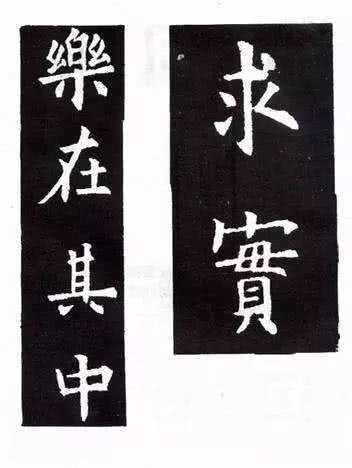 求實
樂在其中